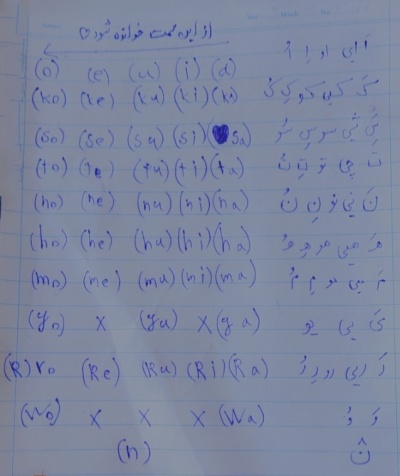 از این سمت خوانده شود
(o) (e) (u) (i) (a) اَ ای او اِ اُ
(ko) (ke) (ku) (ki) (ka) کَ کی کو کِ کُ
(so) (se) (su) (si) (sa) سَ سی سو سِ سُ
(to) (te) (tu) (ti) (ta) تَ چی تو تِ تُ
(no) (ne) (nu) (ni) (na) نَ نی نو نِ نُ
(ho) (he) (hu) (hi) (ha) هَ هی هو هِ هُ
(mo) (me) (mu) (mi) (ma) مَ می مو مِ مُ
(yo) x (yu) x (ya) یَ یی یو
(R) ro (Re) (Ru) (Ri) (Ra) رَ ری رو رِ رُ
(Wo) x x x (Wa) وَ وُ
(n) ن